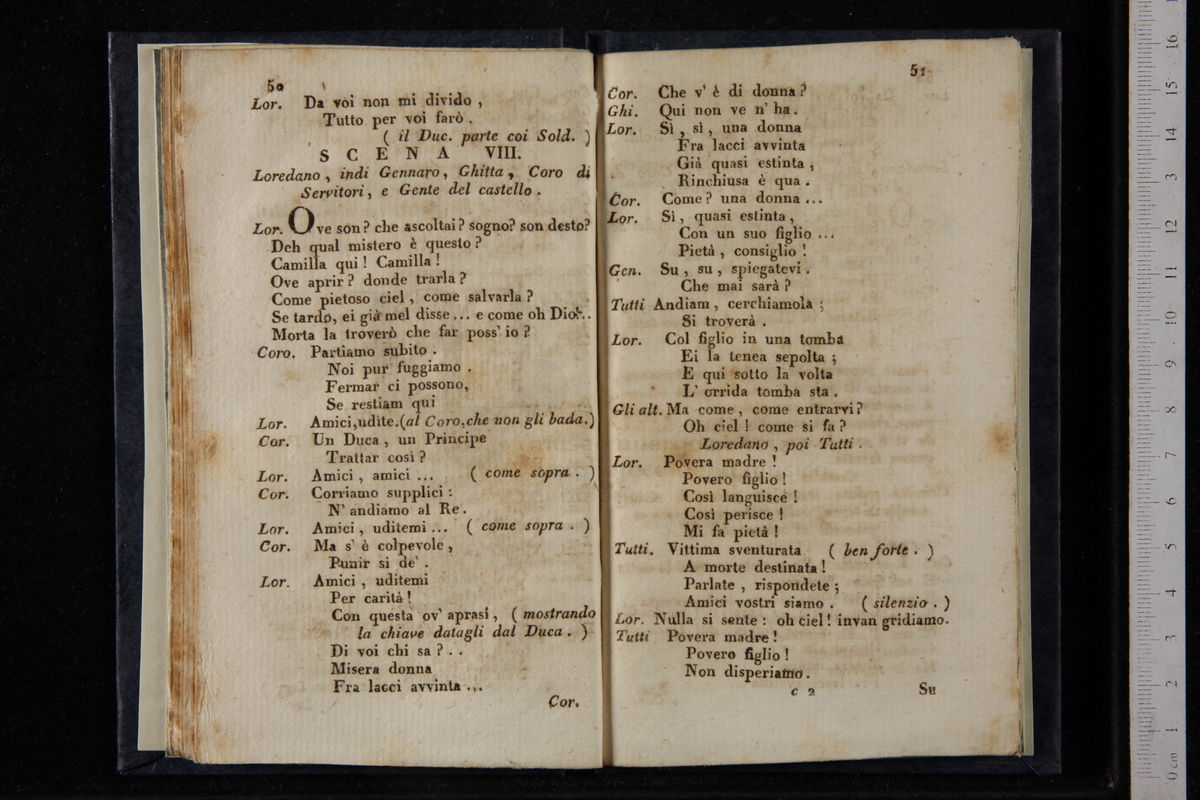 50
Lor. Da voi non mi divido ,
Tutto per voi farò .
( il Duc. parte coi Sold. )
S C E N A VIII.
Loredano , indi Gennaro, Ghitta , Coro di
Servitori , e Gente del castello .
Lor. Ove son? che ascoltai? sogno? son desto?
Deh qual mistero è questo ?
Camilla qui ! Camilla !
Ove aprir? donde trarla ?
Come pietoso ciel , come salvarla ?
Se tardo, ei già mel disse ... e come oh Dio! ..
Morta la troverò che far poss' io ?
Coro. Partiamo subito .
Noi pur fuggiamo .
Fermar ci possono,
Se restiam qui
Lor. Amici,udite.(al Coro,che non gli bada.)
Cor. Un Duca , un Principe
Trattar così ?
Lor. Amici , amici ... ( come sopra . )
Cor. Corriamo supplici :
N' andiamo al Re .
Lor. Amici , uditemi ... ( come sopra . )
Cor. Ma s' è colpevole ,
Punir si de' .
Lor. Amici , uditemi
Per carità !
Con questa ov' aprasi , ( mostrando
la chiave datagli dal Duca . )
Di voi chi sa ? . .
Misera donna
Fra lacci avvinta ...
Cor.
51
Cor. Che v' è di donna ?
Ghi. Qui non ve n' ha .
Lor. Sì , sì , una donna
Fra lacci avvinta
Già quasi estinta ,
Rinchiusa è qua .
Cor. Come ? una donna ...
Lor. Sì , quasi estinta ,
Con un suo figlio ...
Pietà , consiglio !
Gen. Su , su , spiegatevi .
Che mai sarà ?
Tutti Andiam , cerchiamola ;
Si troverà .
Lor. Col figlio in una tomba
Ei la tenea sepolta ;
E qui sotto la volta
L' orrida tomba sta .
Gli alt. Ma come , come entrarvi?
Oh ciel ! come si fa ?
Loredano , poi Tutti .
Lor. Povera madre !
Povero figlio !
Così languisce !
Così perisce !
Mi fa pietà !
Tutti. Vittima sventurata ( ben forte . )
A morte destinata !
Parlate , rispondete ;
Amici vostri siamo . ( silenzio . )
Lor. Nulla si sente : oh ciel ! invan gridiamo.
Tutti Povera madre !
Povero figlio !
Non disperiamo .
C 2 Su
0 cm 1 2 3 4 5 6 7 8 9 10 11 12 13 14 15 16